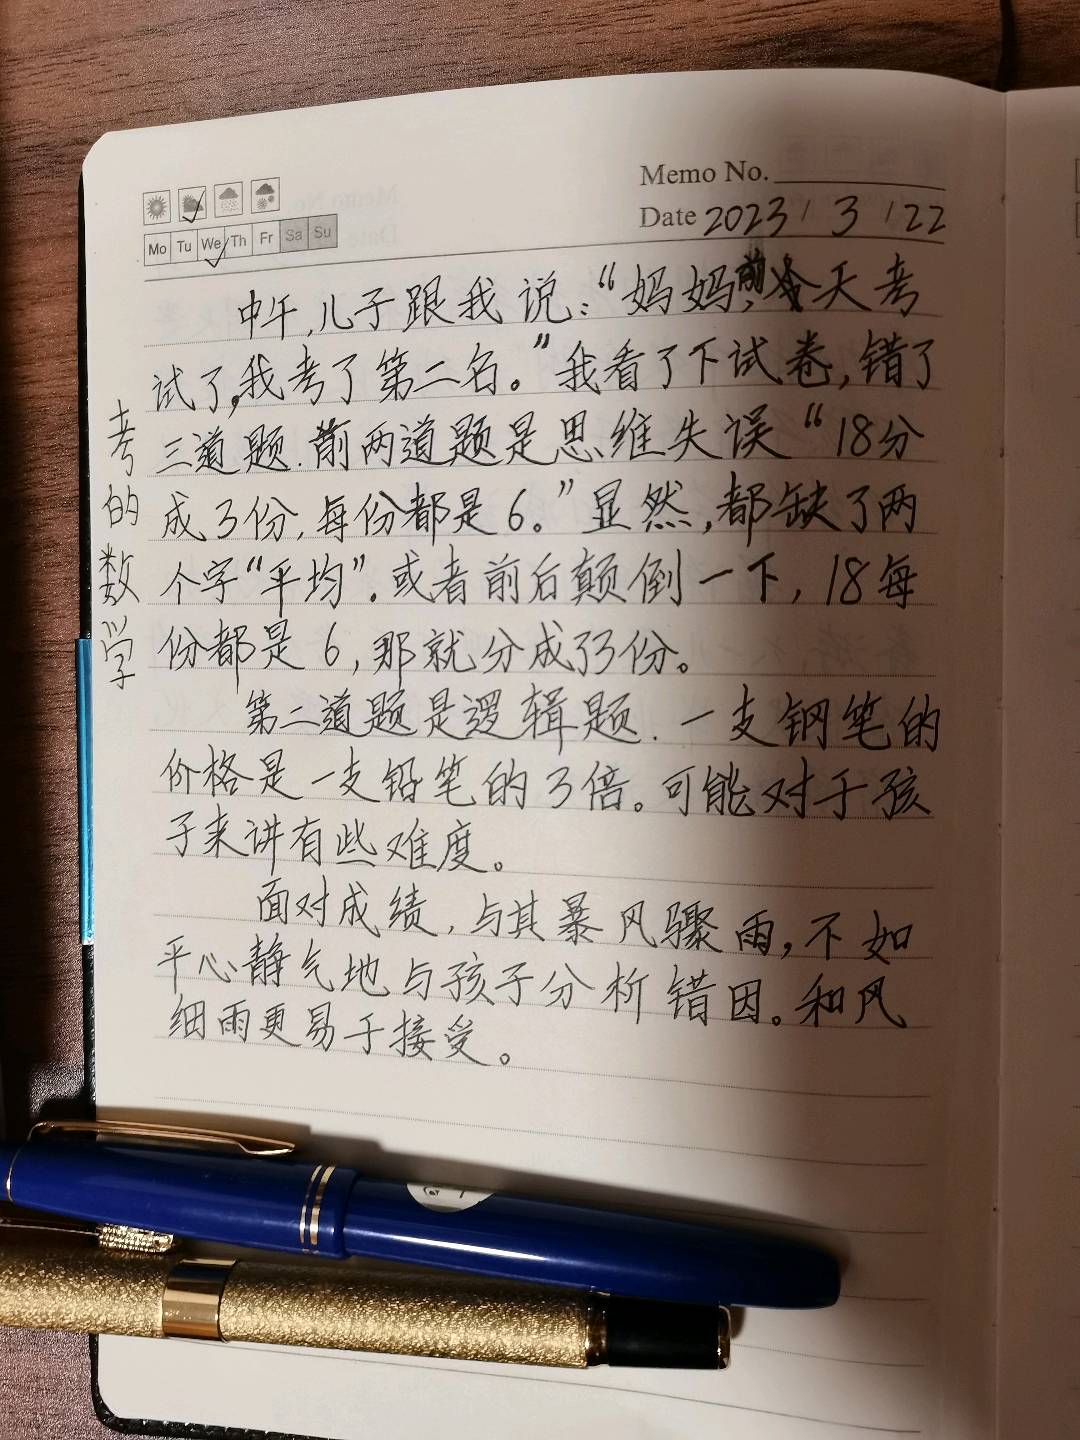 Memo No.
Date 2023/3/22
Mo Tu We Th Fr Sa Su
中午,儿子跟我说:“妈妈,前天考
试了,我考了第二名。”我看了下试卷,错了
三道题.前两道题是思维失误“18分
成3份,每份都是6。”显然,都缺了两
个字“平均”.或者前后颠倒一下,18每
份都是6,那就分成了3份。
第二道题是逻辑题.一支钢笔的
价格是一支铅笔的3倍。可能对于孩
子来讲有些难度。
面对成绩,与其暴风骤雨,不如
平心静气地与孩子分析错因。和风
细雨更易于接受。
考的数学